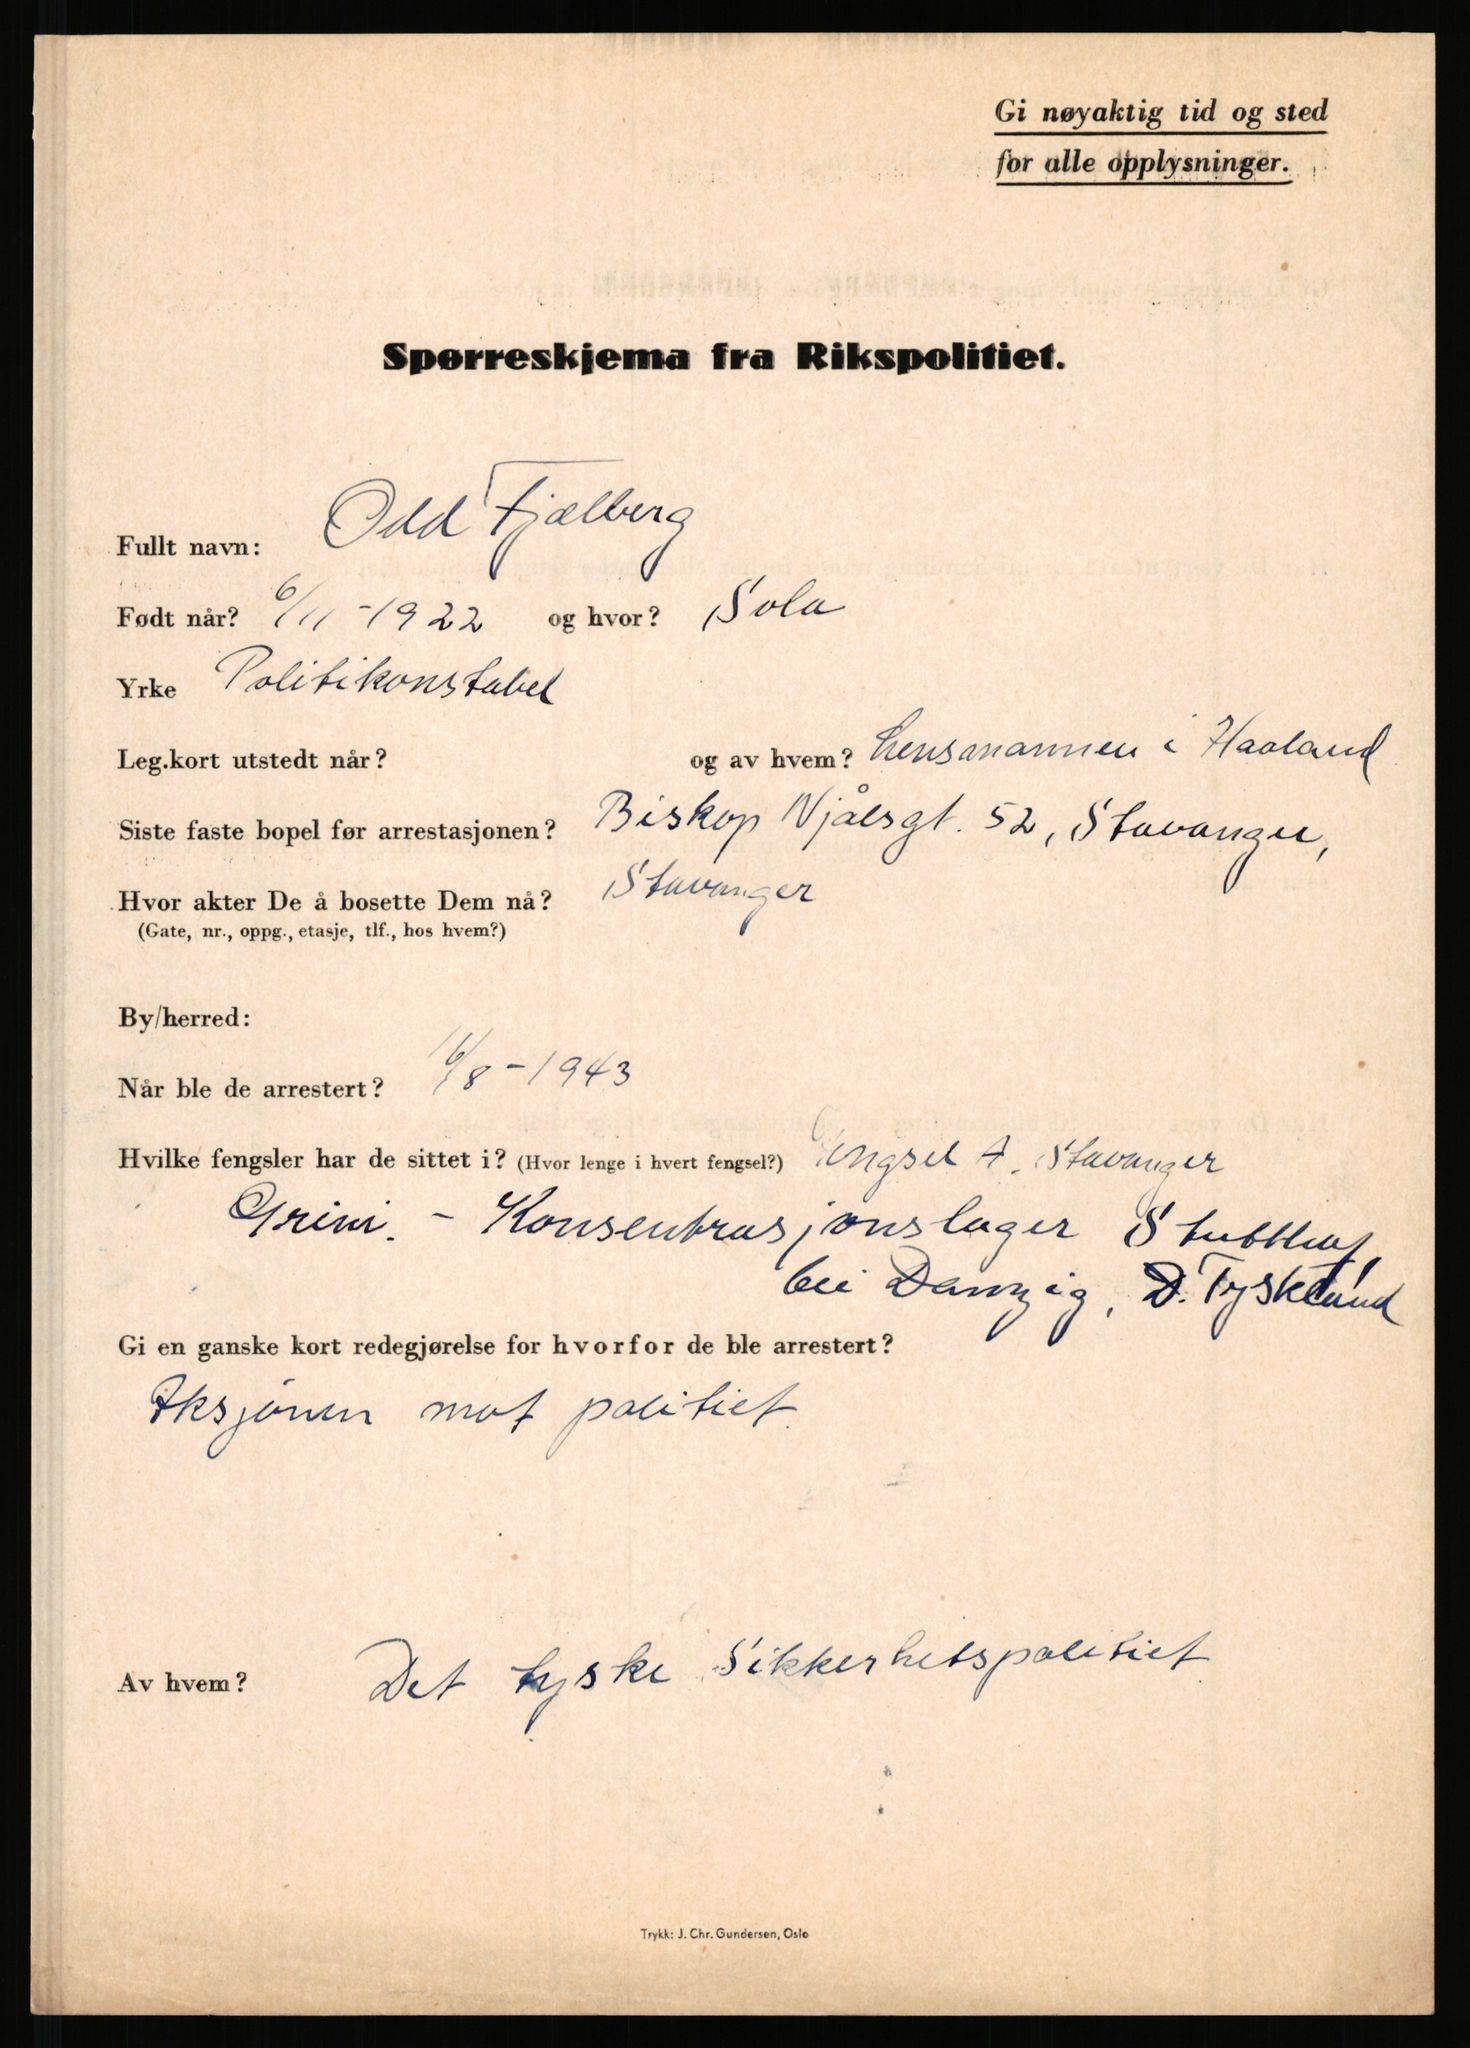 Gi nøyaktig tid og sted
for alle opplysninger.
Spørreskjema fra Rikspolitiet.
Fullt navn: Odd Fjælberg
Født når? 6/11-1922 og hvor? Sola
Yrke Politikonstabel
Leg.kort utstedt når? og av hvem? Lensmannen i Haaland
Siste faste bopel før arrestasjonen? Biskop Njålsgt. 52, Stavanger,
Hvor akter De å bosette Dem nå? Stavanger
(Gate, nr., oppg., etasje, tlf., hos hvem?)
By/herred:
Når ble de arrestert? 16/8-1943
Hvilke fengsler har de sittet i? (Hvor lenge i hvert fengsel?) Fengsel A. Stavanger
Grini. - Konsentrasjonslager Stutthof,
bei Danzig, D. Tyskland
Gi en ganske kort redegjørelse for hvorfor de ble arrestert?
Aksjonen mot politiet.
Av hvem? Det tyske Sikkerhetspolitiet
Trykk: J. Chr. Gundersen, Oslo